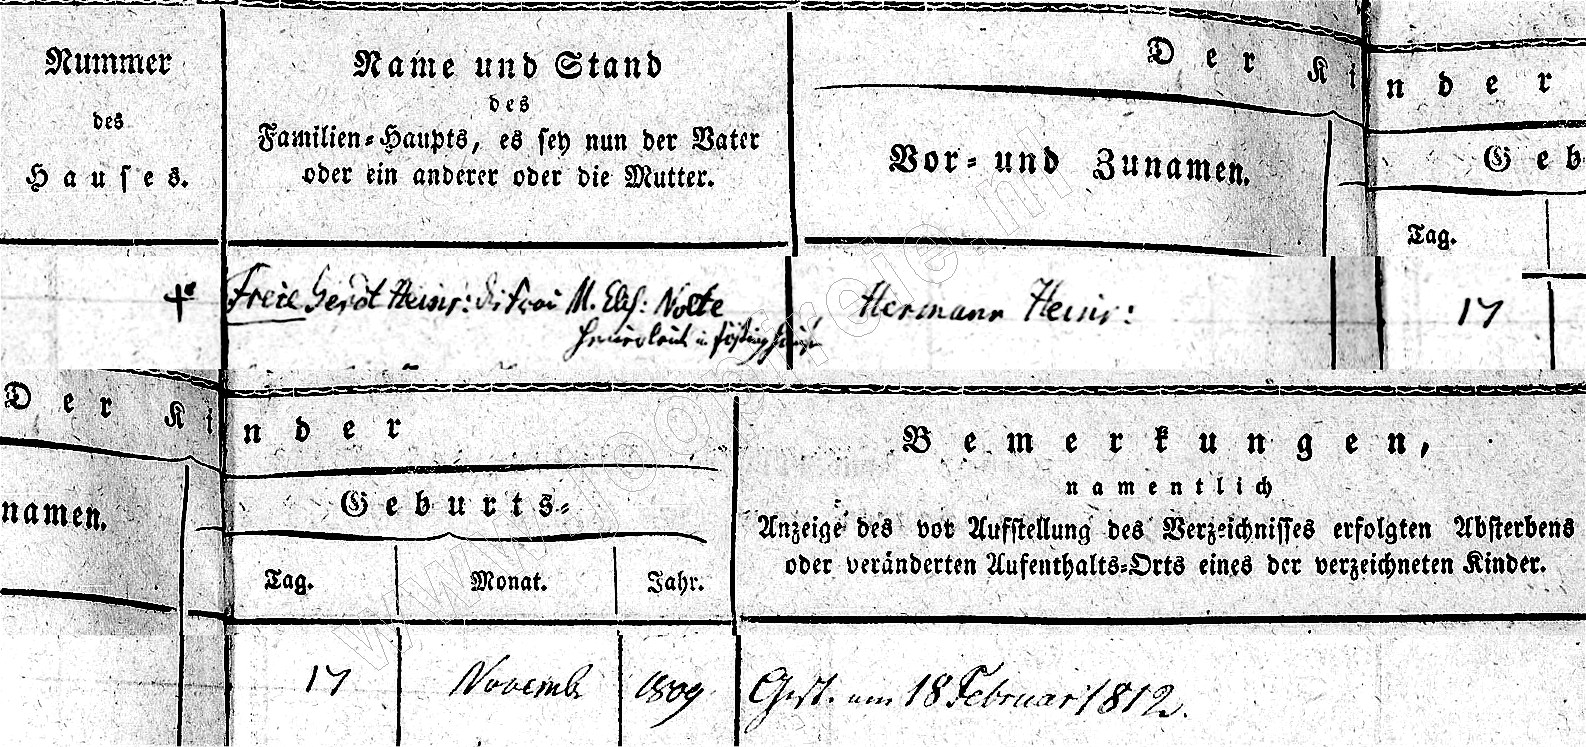 Nummer
des
Hauses.
Name und Stand
des
Familien-Haupts, es sey nun der Vater
oder ein anderer oder die Mutter.
Der Kinder
Vor- und Zunamen.
Geb
Tag.
Freie Gerdt Heinr: M. Elis: Nolte
Heuerleute in
Hermann Heinr:
17
Der Kinder
namen.
Geburts-
Tag.
Monat.
Jahr.
Bemerkungen,
namentlich
Anzeige des vor Aufstellung des Verzeichnisses erfolgten Absterbens
oder veränderten Aufenthalts-Orts eines der verzeichneten Kinder.
17
Novemb
1809
Gest. am 18 Februar 1812.